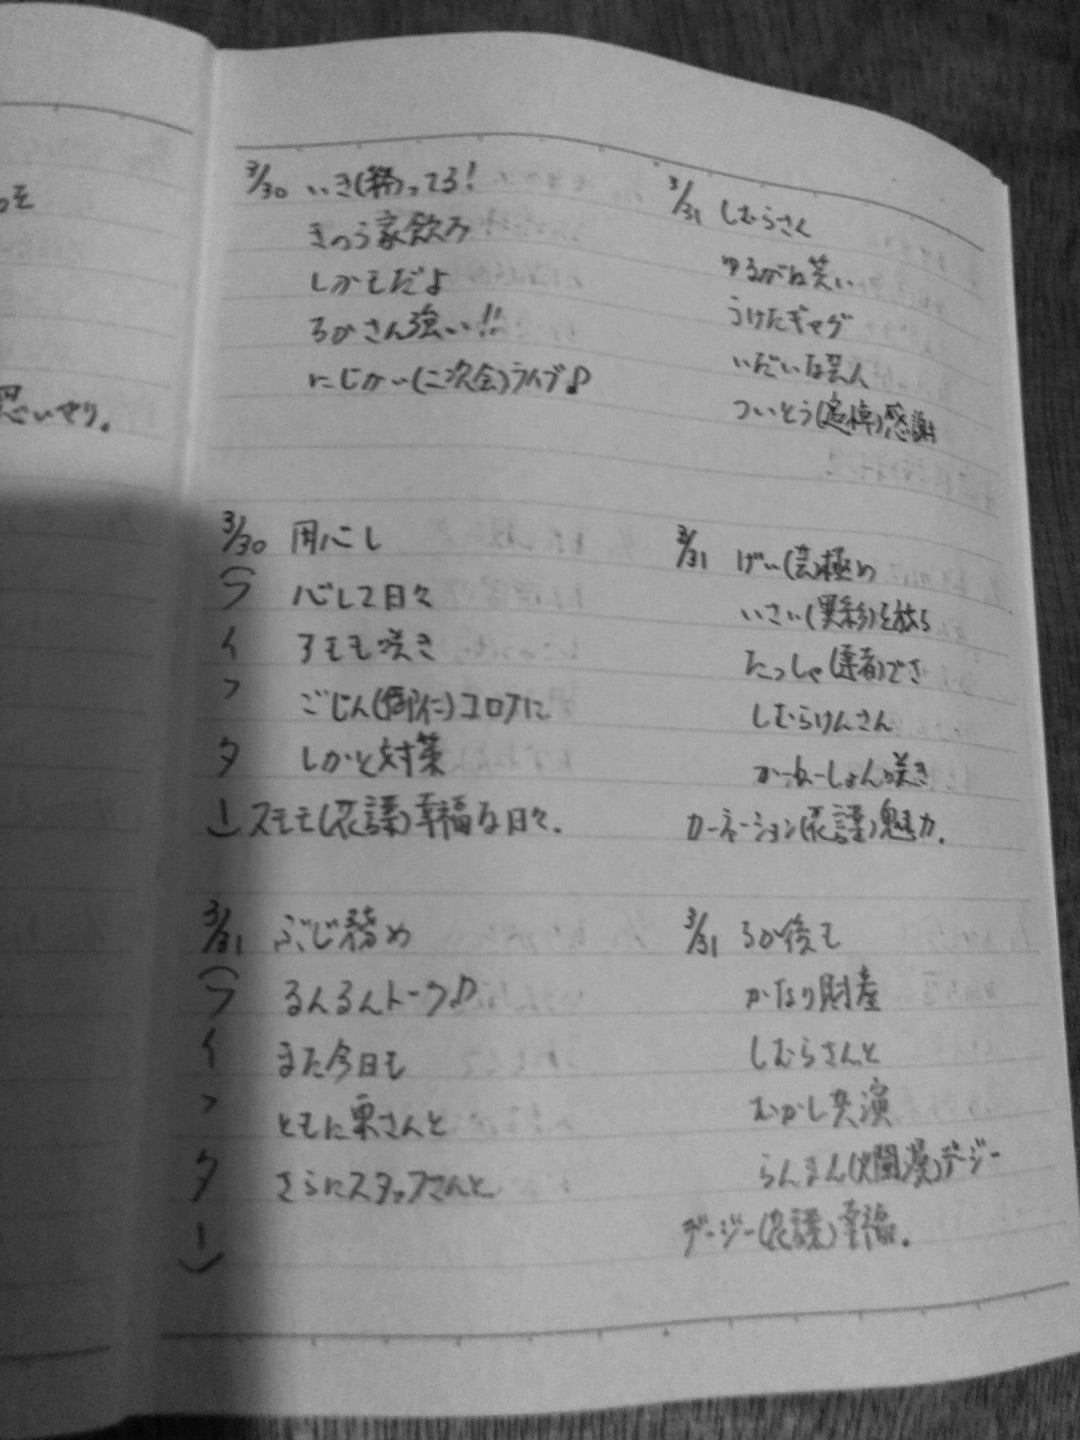 っそ
思いやり。
3/30 いき(粋)ってる!
きのう家飲み
しかもだよ
るかさん強い!!
にじかい(二次会)ライブ♪
3/30 用心し
(ライフター) 心して日々
スモモ咲き
ごじん(御仁)コロナに
しかと対策
スモモ(花言葉)幸福な日々。
3/31 ぶじ務め
(ライフター) るんるんトーク♪
また今日も
ともに栗さんと
さらにスタッフさんと
3/31 しむらさん
ゆるがぬ笑い
うけたギャグ
いだいな芸人
ついとう(追悼)感謝
3/31 げい(芸)極め
いさい(異彩)を放ち
たっしゃ(達者)でさ
しむらけんさん
かーねーしょん咲き
カーネーション(花言葉)魅力。
3/31 るか後も
かなり財産
しむらさんと
むかし共演
らんまん(爛漫)デージー
デージー(花言葉)幸福。